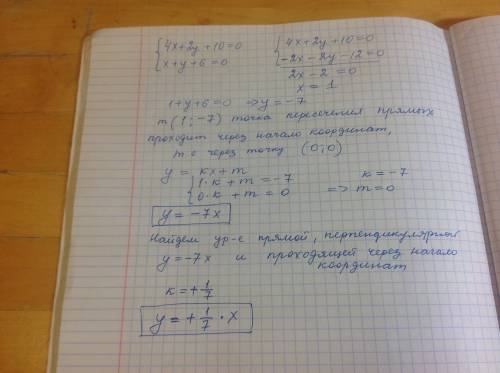 { 4x+2y+10=0
x+y+6=0
{ 4x+2y+10=0
-2x-2y-12=0
2x-2=0
x=1
1+y+6=0 => y=-7
т(1;-7) точка пересечения прямых
проходит через начало координат,
т е через точку (0;0)
y = kx+m
{ 1·k+m=-7
0·k+m=0
k=-7
=> m=0
y=-7x
Найдем ур-е прямой, перпендикулярной
y=-7x и проходящей через начало
координат
k=+1/7
y=+1/7·x